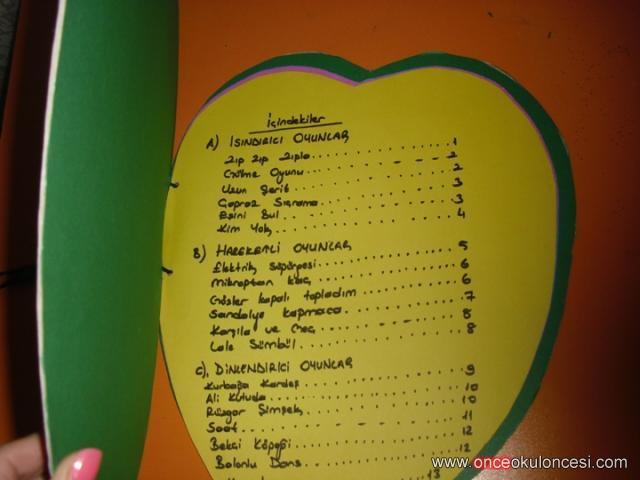 İçindekiler
A) ISINDIRICI OYUNLAR
Zıp zıp zıpla.............1
Gülme Oyunu.............2
Uzun Şerit.............2
Çapraz Sıçrama.............3
Eşini Bul.............3
Kim Yok.............4
B) HAREKETLİ OYUNLAR
Elektrik Süpürgesi.............5
Mikroptan Kaç.............6
Gözler kapalı topladım.............6
Sandalye Kapmaca.............7
Karşıla ve Geç.............8
Lale Sümbül.............8
C). DİNLENDİRİCİ OYUNLAR
Kurbağa Kardeş.............9
Ali Kutuda.............10
Rüzgar Şimşek.............10
Saat.............11
Bekçi Köpeği.............12
Balonlu Dans.............12
13
www.onceokuloncesi.com